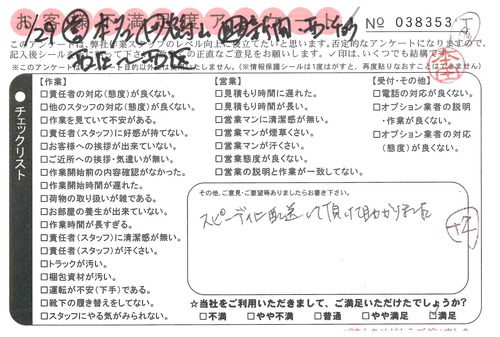 № 038353
このアンケートは、弊社作業スタッフのレベル向上に役立てたいと思います。否定的なアンケートになりますので、
記入後シール
正直なご意見をお願いします。☑印は、いくつでも結構です。
※このアンケートは
目的以外は使用いたしません。(※情報保護シールは1度はがすと、再度貼りなおすことはできません)
チェックリスト
【作業】
□責任者の対応(態度)が良くない。
□他のスタッフの対応(態度)が良くない。
□作業を見ていて不安がある。
□責任者(スタッフ)に好感が持てない。
□お客様への挨拶が出来ていない。
□ご近所への挨拶・気遣いが無い。
□作業開始前の内容確認がなかった。
□作業開始時間が遅れた。
□荷物の取り扱いが雑である。
□お部屋の養生が出来ていない。
□作業時間が長すぎる。
□責任者(スタッフ)に清潔感が無い。
□責任者(スタッフ)が汗くさい。
□トラックが汚い。
□梱包資材が汚い。
□運転が不安(下手)である。
□靴下の履き替えをしてない。
□スタッフにやる気がみられない。
【営業】
□見積もり時間に遅れた。
□見積もり時間が長い。
□営業マンに清潔感が無い。
□営業マンが煙草くさい。
□営業マンが汗くさい。
□営業態度が良くない。
□営業の説明と作業が一致してない。
【受付・その他】
□電話の対応が良くない。
□オプション業者の説明
・作業が良くない。
□オプション業者の対応
(態度)が良くない。
その他、ご意見・ご要望等ありましたらお書き下さい。
スピーディに配送して頂けて助かりました
☆当社をご利用いただきまして、ご満足いただけたでしょうか?
□不満 □やや不満 □普通 □やや満足 ☑満足